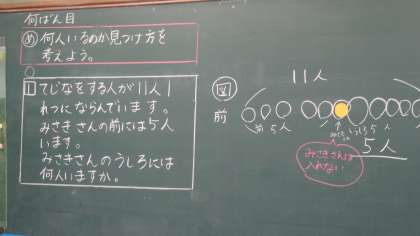 何ばん目
め 何人いるのか見つけ方を
考えよう。
1 てじなをする人が11人1
れつにならんでいます。
みさきさんの前には5人
います。
みさきさんのうしろには
何人いますか。
図
11人
前
前 5人
みさき
うしろ 5人
5人
みさきさんは
入れない